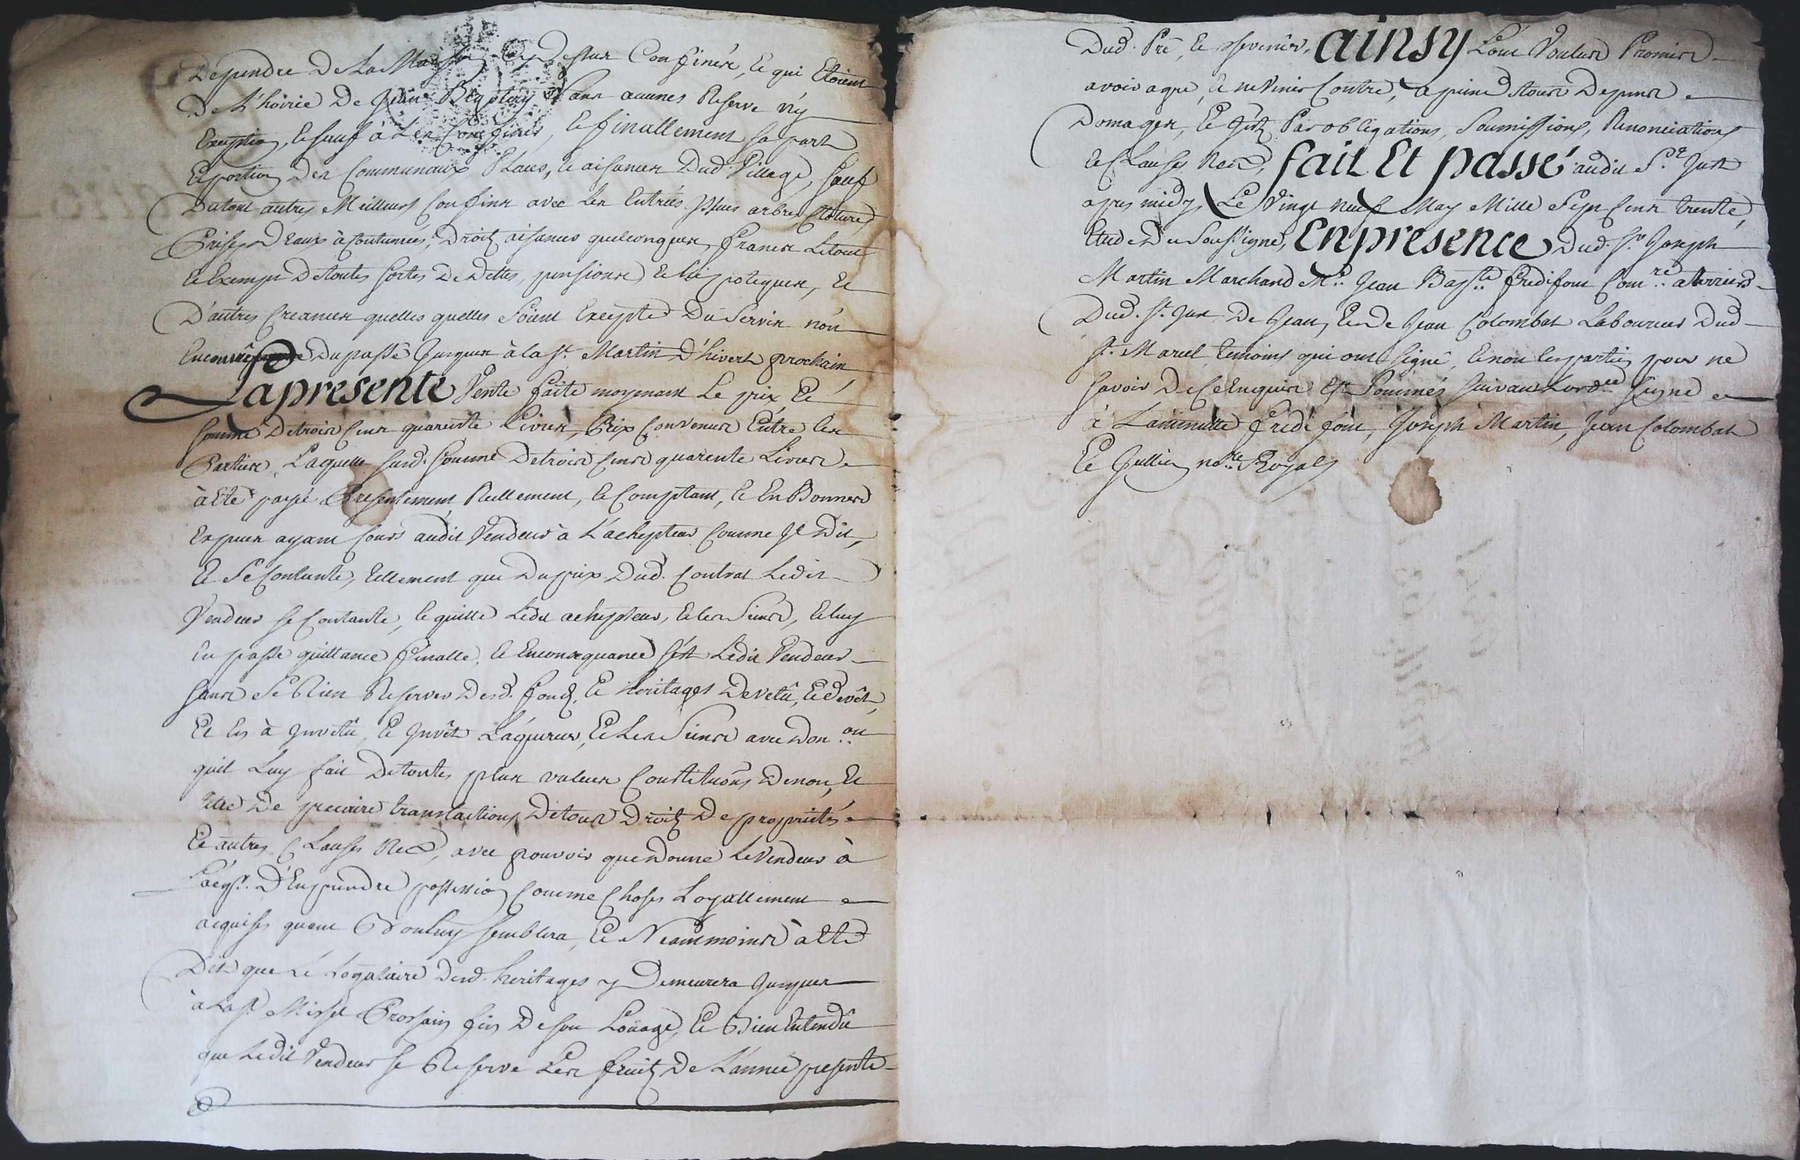 Dependre De La Cy Dessus Confinés, Et qui Etoient
De L'hoirie De Jean Sans aucunes Reserve n'y
Exception, Et sauf à Les Confinés, Et finallement sa part
Et portion Des Communaux Places, Et aisances Dud. Village, sauf
Datous autres Meilleurs Confins avec Les Entrées, yssues arbres Cloture,
Prises D'eaux àcoutumées, Droits aisances quelconques, francs Letout
Et Exempt Detoutes sortes De Dettes, pensions Et hipoteques, Et
D'autres Creances quelles quelles Soient Excepté Du Servis non
Encouru Dupassé Jusques à la St. Martin D'hivert prochain
La presente Vente faite moyenant Le prix Et
Somme Detrois Cens quarente Livres, Prix Convenus Entre Les
Parties, Laquelle susd. Somme Detrois Cens quarente Livres
à Eté payé Presentement, Reellement, Et Comptant, Et En Bonnes
Especes ayant Cours audit Vendeur à L'achepteur Comme Jl Dit,
Et Se Contante, tellement que Duprix Dud. Contrat Ledit
Vendeur se Contante, Et quitte Ledit achepteur, Et les Siens, Et luy
En passe quittance finalle, Et Enconsequance s'est Ledit Vendeur
sans Se Rien Reserver Desd. fonds, Et heritages Devetû, Et Devêt,
Et En à Jnvêtû, Et Jnvêt L'aquereur, Et Les Siens avec Don.on
quil Luy fait Detoutes plus values Constitutions Denom, Et
titre De precaire translactions Detous Droits De proprietés
Et autres Clauses Necres, avec pouvoir que Donne LeVendeur à
L'acqr. D'Enprendre possession Comme Choses Loyallement
acquises quand Bonluy semblera, Et Neammoins à Eté
Dit que Le Logataire Desd. heritages y Demeurera Jusques
à La St. Michel Prochain fin De son Loüage, Et Bien Entendû
que Ledit Vendeur se Reserve Les fruits De L'année presente
Dud. Pré, Et Ainsy Loüé Voulus Promis
avoir agré, Et nevenir Contre, à peine Detous Depens
Domages, Et Jnts Par obligations, Soumissions, Renonciations
Et Clauses Necres, fait Et passé audit St. Just
apres midy Le Vingt neuf May Mille Sept Cens trente,
Etude Du Sousigné, En presence Dud. Sr. Joseph
Martin Marchand Me. Jean Bapte. fredifon Comre. atterriers
Dud. St. Just De Jean, Et De Jean Colombat Laboureur Dud.
St. Marcel temoins qui ont signé, Et non Les parties pour ne
Savoir De Ce Enquises Et Sommés suivant Lordce signé
à Laminutte fredifon, Joseph Martin, Jean Colombat
Et Jullien nore. Royal